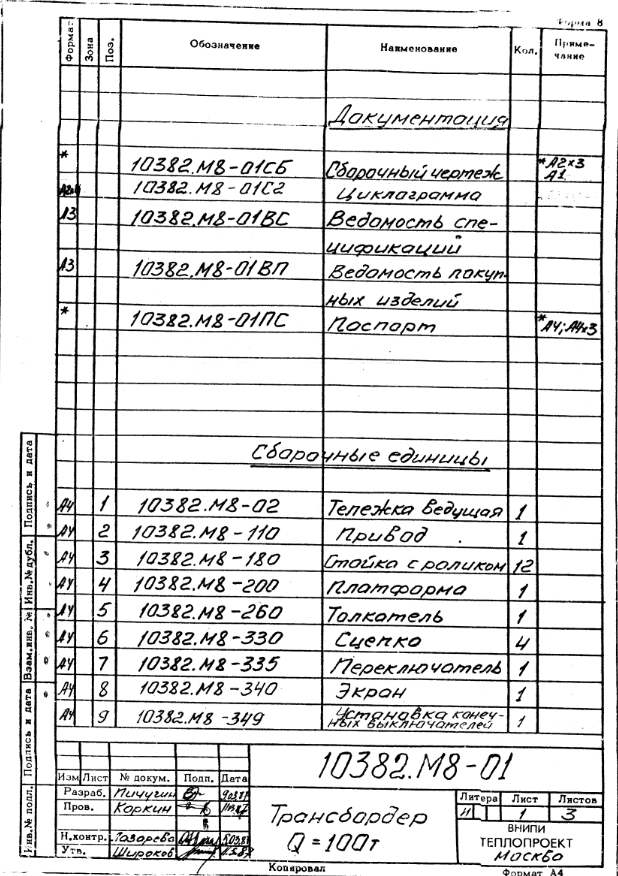 Форма 8
Формат Зона Поз. Обозначение Наименование Кол. Приме-
чание
Документация
* 10382.М8-01СБ Сборочный чертеж *А2х3
А1
10382.М8-01С2 Циклограмма
А3 10382.М8-01ВС Ведомость спе-
цификаций
А3 10382.М8-01ВП Ведомость покуп-
ных изделий
* 10382.М8-01ПС Паспорт *А4; А4х3
Сборочные единицы
А4 1 10382.М8-02 Тележка ведущая 1
А4 2 10382.М8-110 Привод 1
А4 3 10382.М8-180 Стойка с роликом 12
А4 4 10382.М8-200 Платформа 1
А4 5 10382.М8-260 Толкатель 1
А4 6 10382.М8-330 Сцепка 4
А4 7 10382.М8-335 Переключатель 1
А4 8 10382.М8-340 Экран 1
А4 9 10382.М8-349 Установка конеч-
ных выключателей 1
Инв.№ подл. Подпись и дата Взам.инв. № Инв.№ дубл. Подпись и дата
10382.М8-01
Изм Лист № докум. Подп. Дата
Разраб. Пичугин
Пров. Коркин
Н.контр. Лазарева
Утв. Широков
Трансбордер
Q=100т
Литера Лист Листов
И 1 3
ВНИПИ
ТЕПЛОПРОЕКТ
Москва
Копировал Формат А4